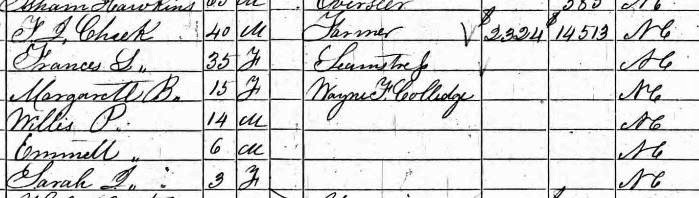 Isham Hawkins M Overseer 385 NC
T J Cheek 40 M Farmer $2324 $14513 NC
Frances L " 35 F Seamstress NC
Margarett B " 15 F Wayne F. Colledge NC
Willis P " 14 M NC
Emmett " 6 M NC
Sarah J " 3 F NC